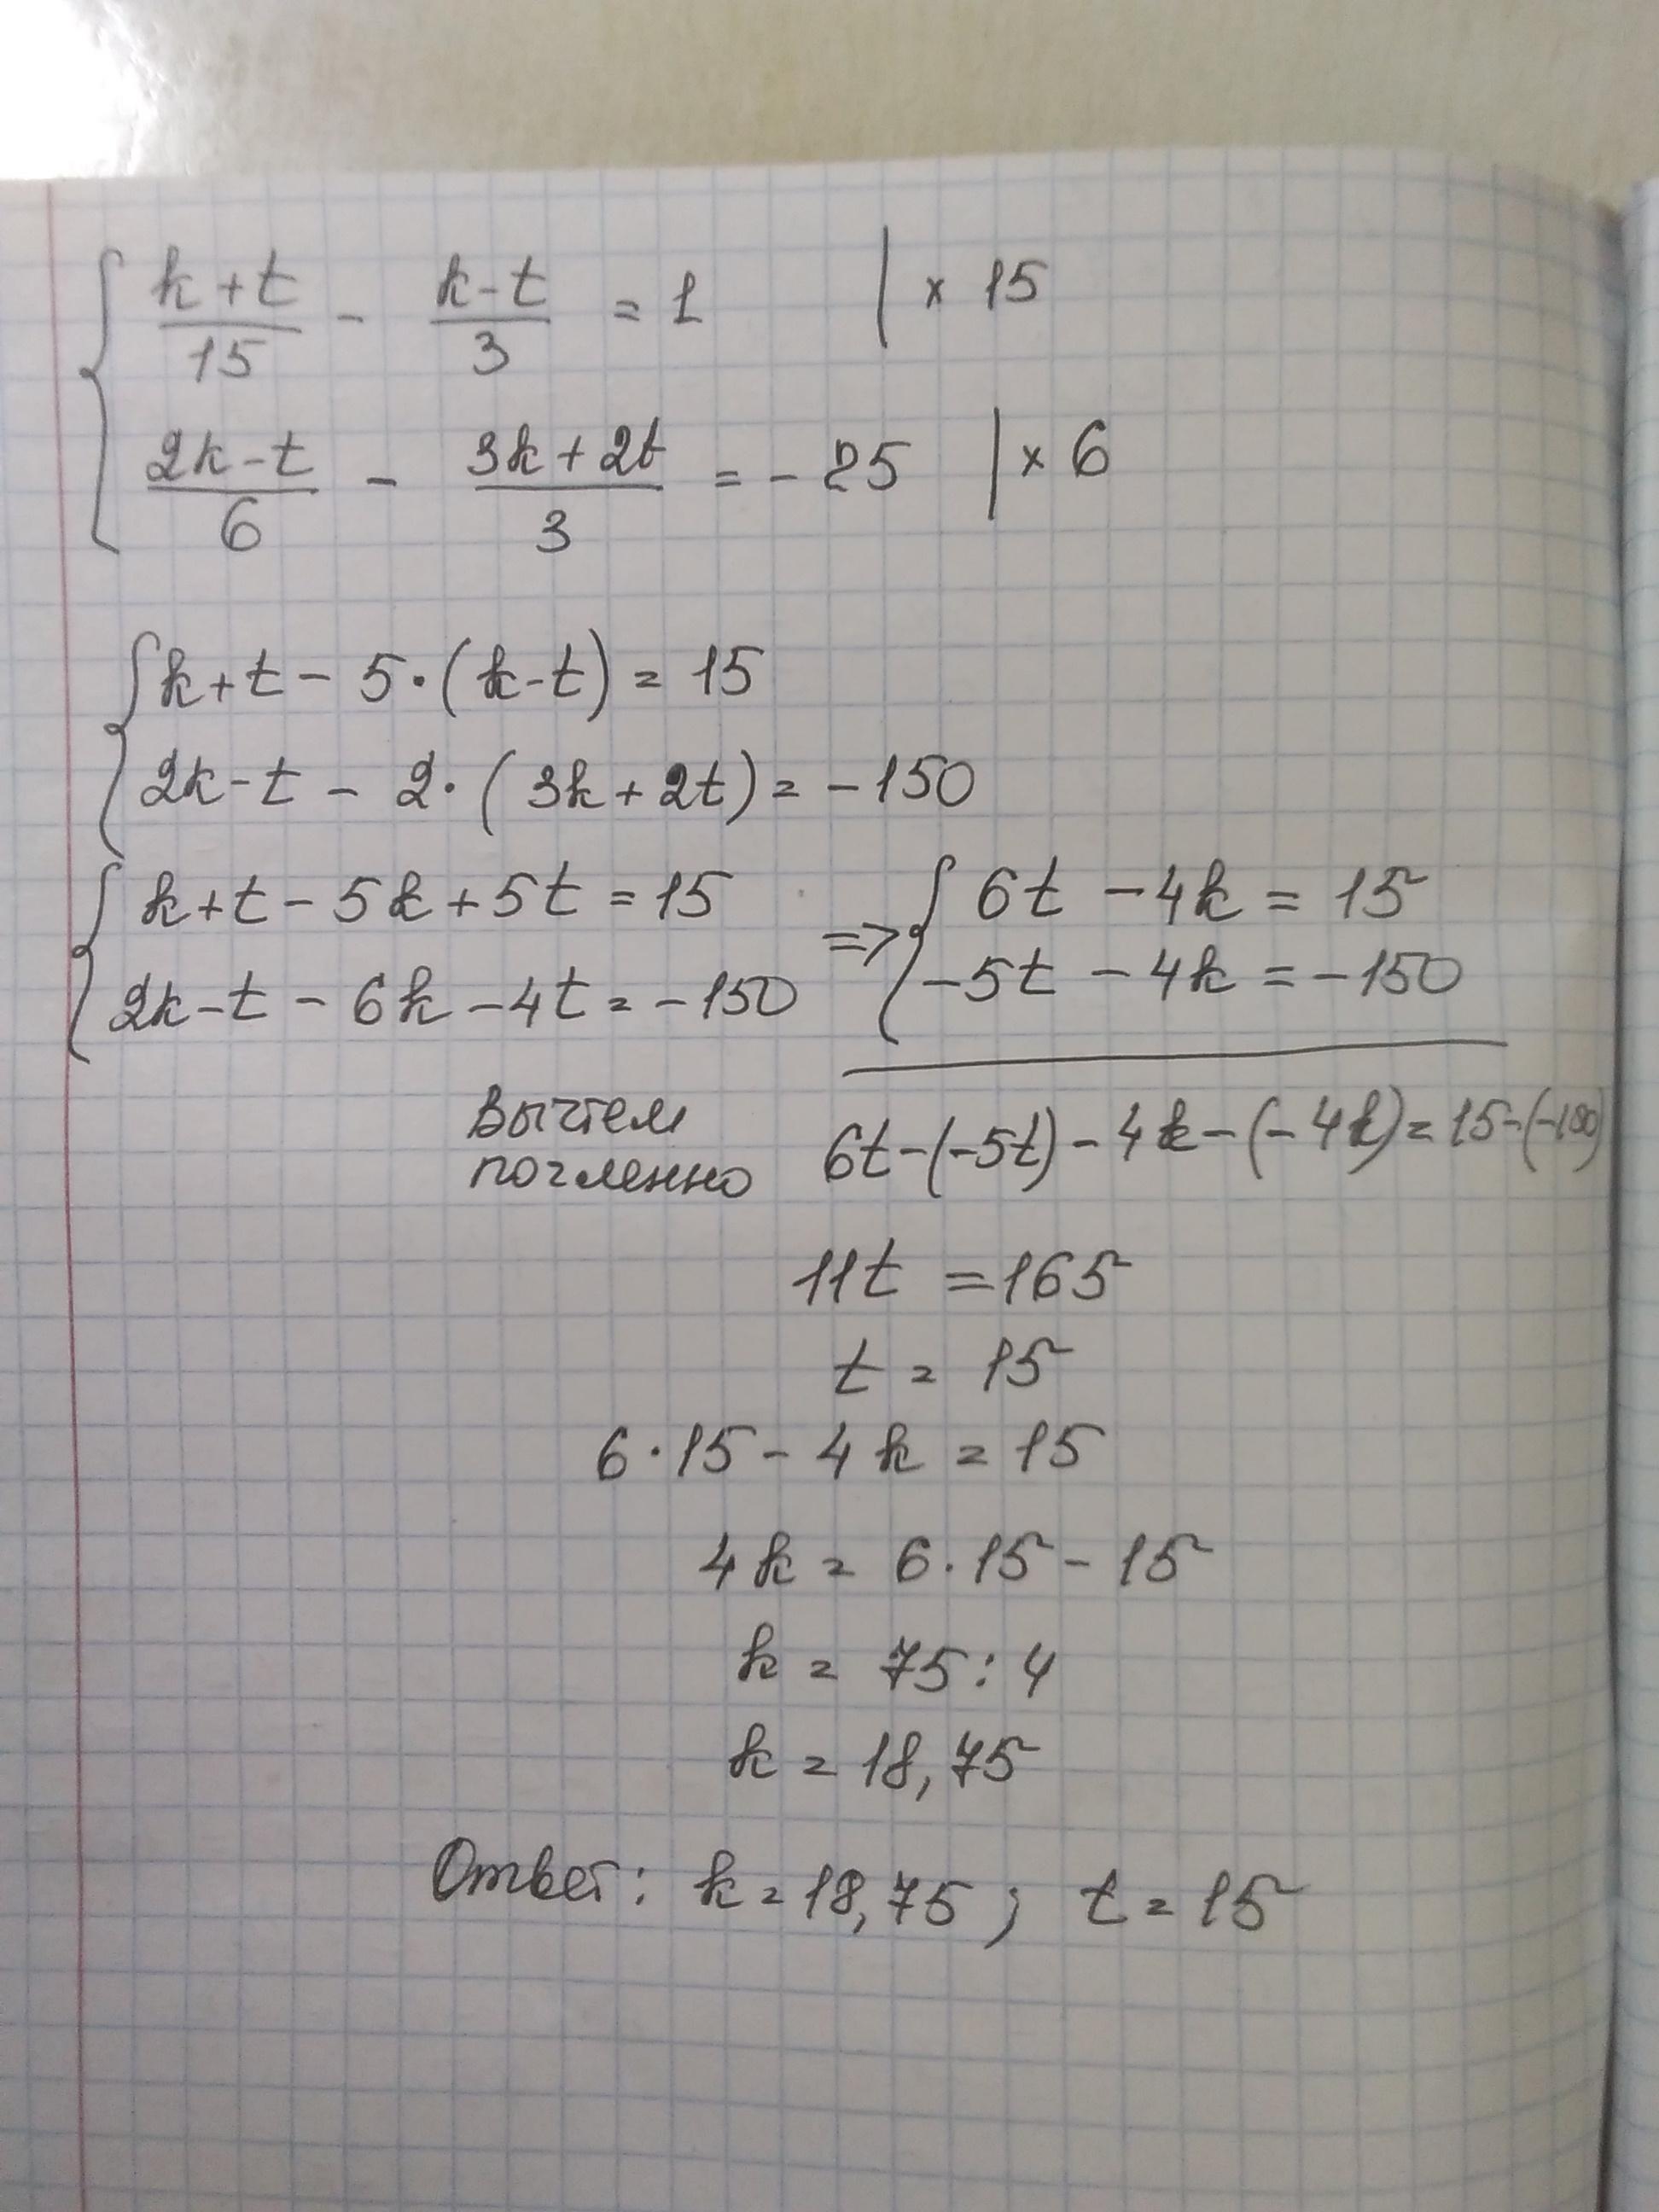 k+t/15 - k-t/3 = 1 | × 15
2k-t/6 - 3k+2t/3 = -25 | × 6
k+t - 5·(k-t) = 15
2k-t - 2·(3k+2t) = -150
k+t-5k+5t = 15 => 6t - 4k = 15
2k-t - 6k - 4t = -150 -5t - 4k = -150
Вычтем
почленно 6t-(-5t)-4k-(-4k) = 15-(-150)
11t = 165
t = 15
6·15 - 4k = 15
4k = 6·15 - 15
k = 75:4
k = 18,75
Ответ: k = 18,75; t = 15